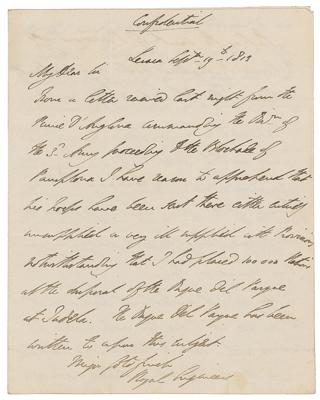 Confidential
Lesaca Septr. 19th. 1813
My dear Sir
From a letter received last night from the
Prince D'Anglona commanding the Divn. of
the 3d. Army proceeding to the Blockade of
Pamplona I have reason to apprehend that
his troops have been sent there either entirely
unsupplied or very ill supplied with Provisions,
notwithstanding that I had placed 100,000 Rations
at the disposal of the Duque Del Parque
at Tudela. The Duque Del Parque has been
written to upon this subject.
Major Goldfinch
Royal Engineers